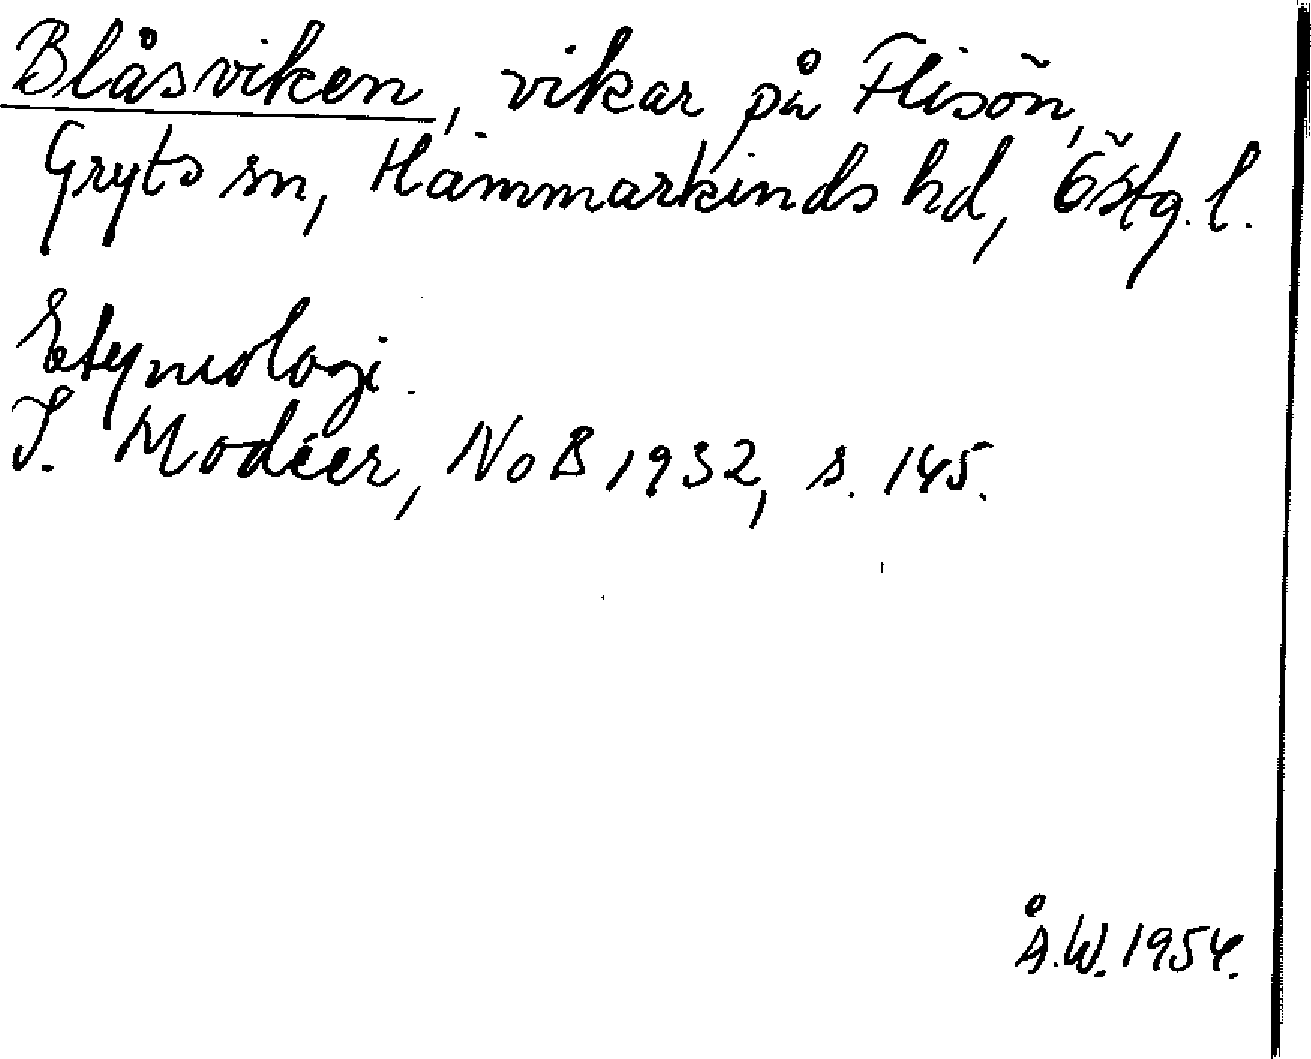 Blåsviken, vikar på Flisön,
Gryts sn, Hammarkinds hd, Östg. l.
Etymologi.
I. Modéer, NoB 1932, s. 145.
Å.W. 1954.